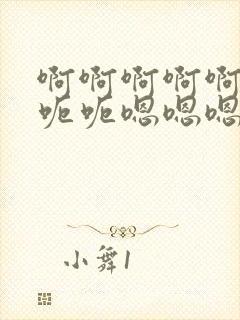 啊啊啊啊啊
呃呃嗯嗯嗯
小舞1